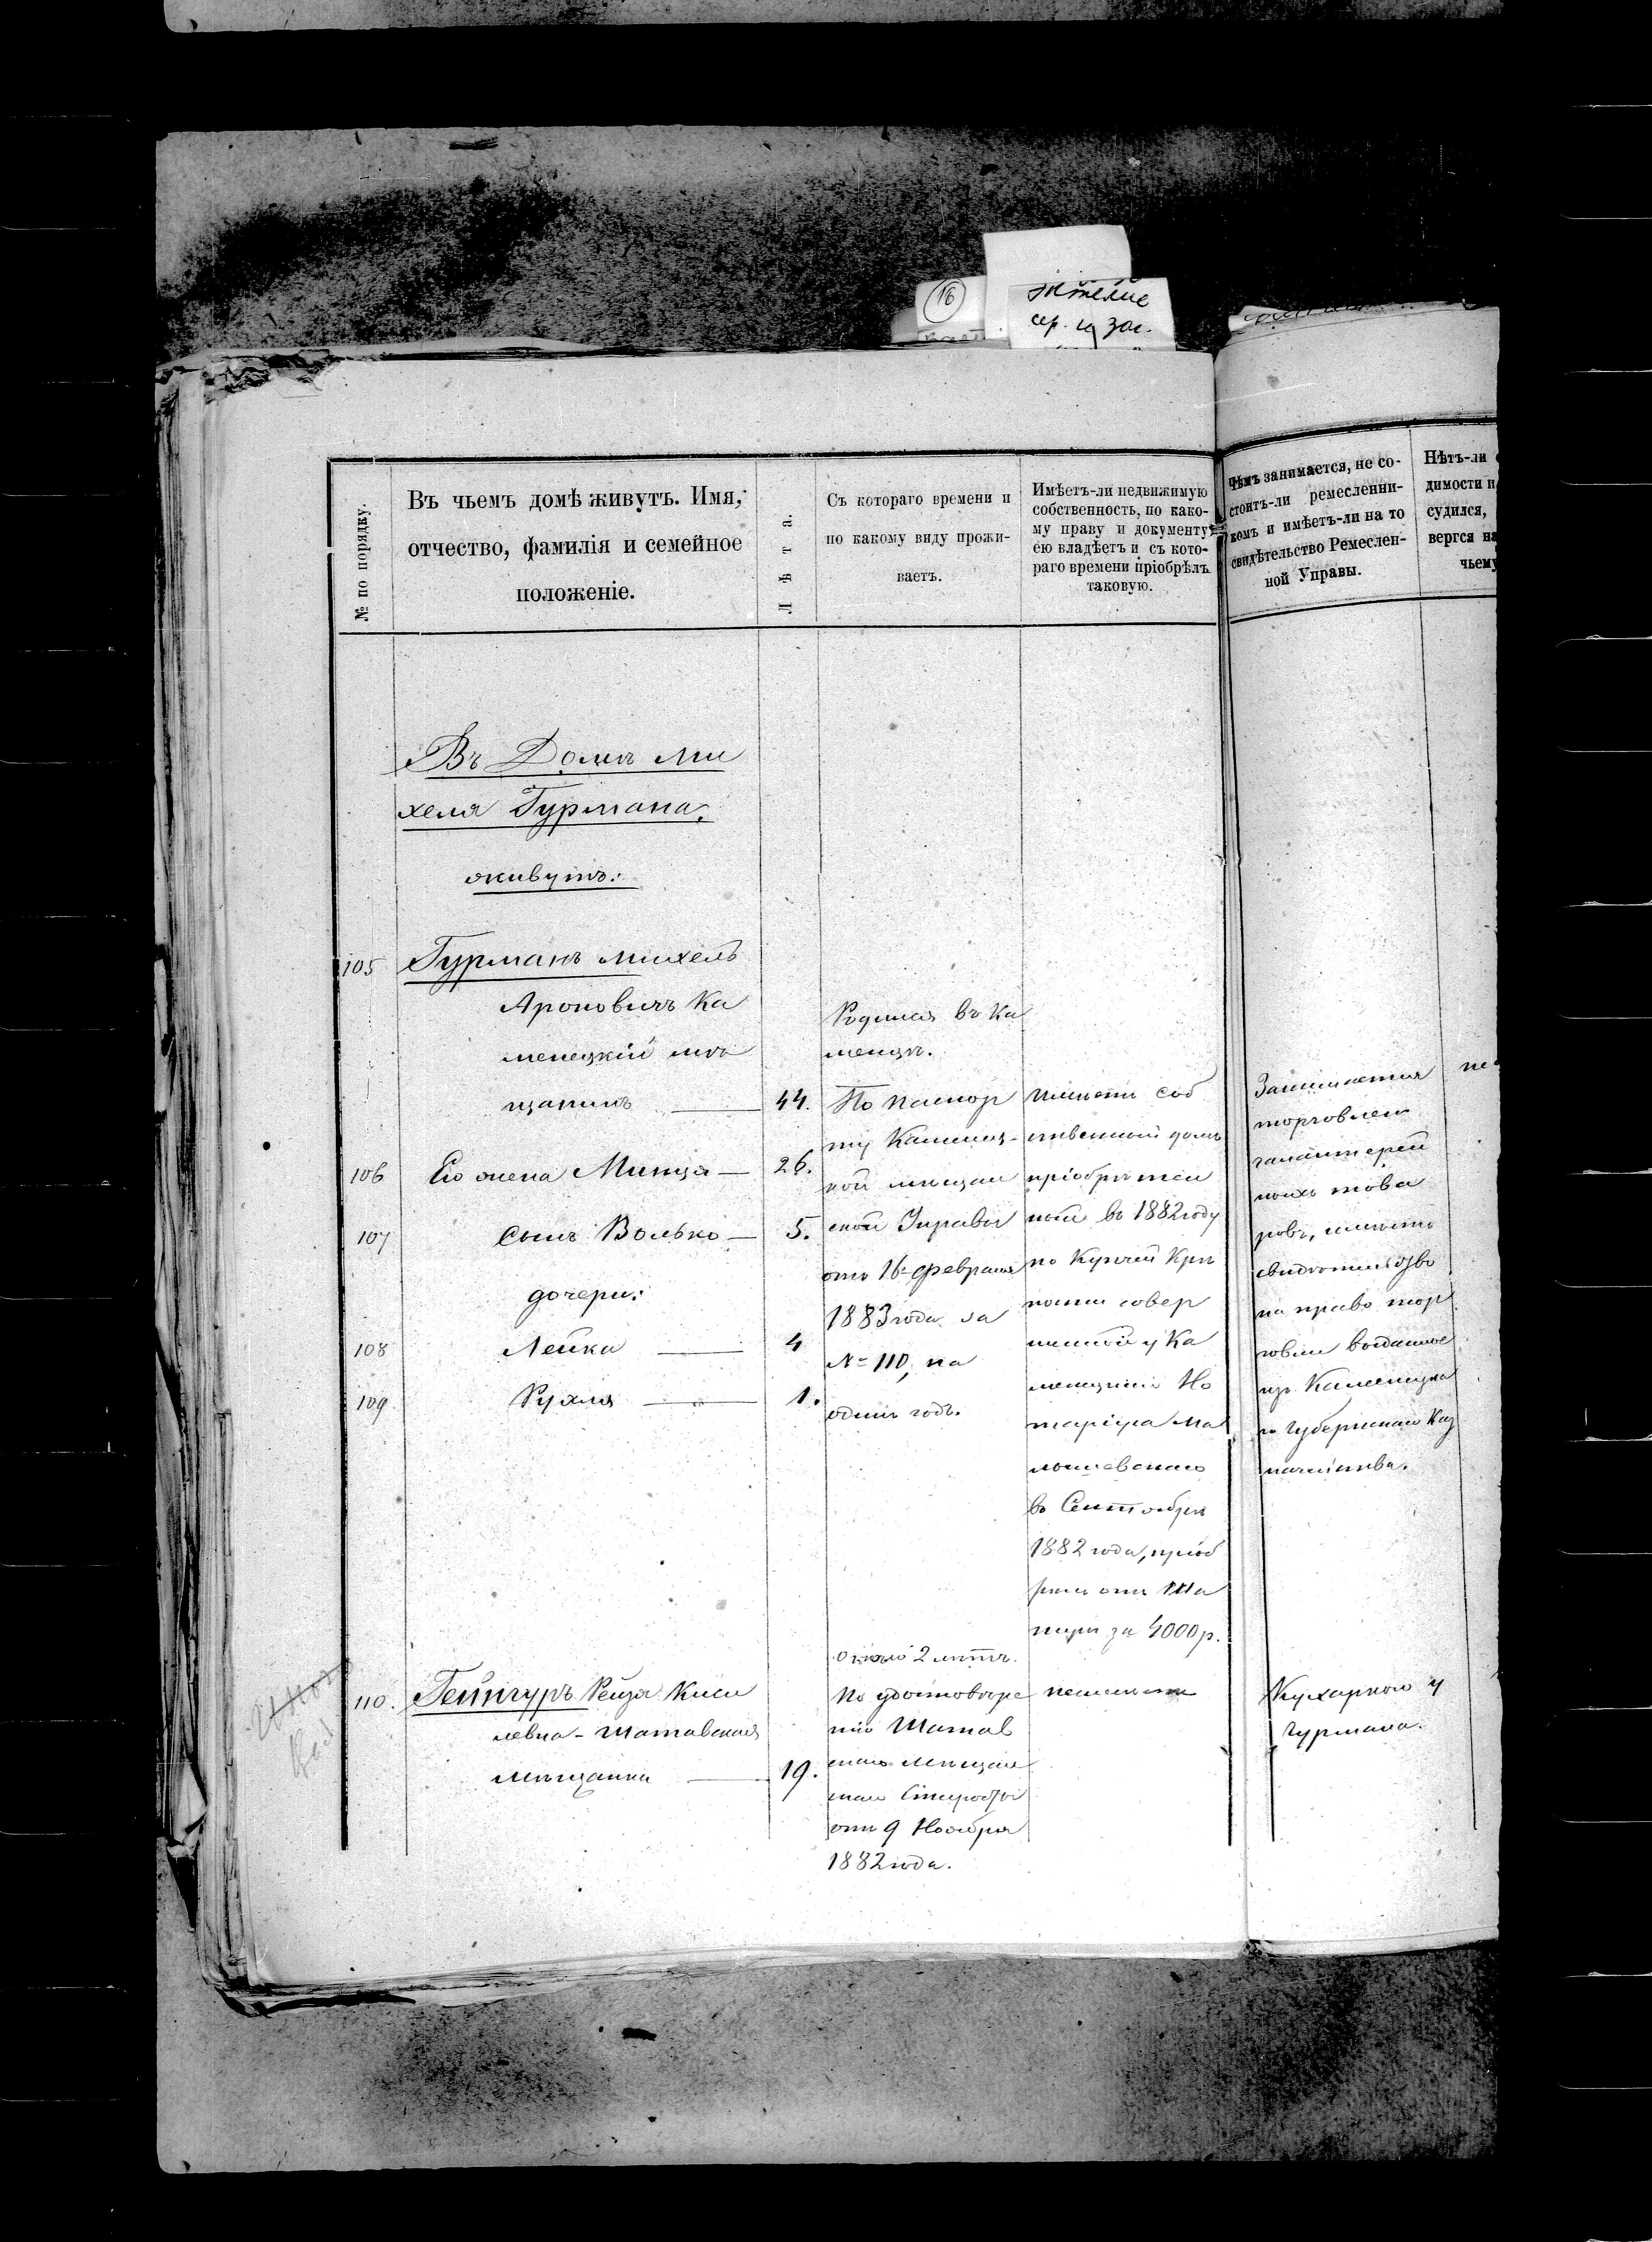 16
жители
сер. и зак.
№ по порядку.
Въ чьемъ домѣ живутъ. Имя,
отчество, фамилія и семейное
положеніе.
Лѣта.
Съ котораго времени и
по какому виду прожи-
ваетъ.
Имѣетъ-ли недвижимую
собственность, по како-
му праву и документу
ею владѣетъ и съ кото-
раго времени пріобрѣлъ
таковую.
Чѣмъ занимается, не со-
стоитъ-ли ремесленни-
комъ и имѣетъ-ли на то
свидѣтельство Ремеслен-
ной Управы.
Нѣтъ-ли
димости и
судился,
вергся на
чьему
Въ Домѣ Ми
хеля Гурмана,
живутъ:
105 Гурманъ Михель
Ароновичъ Ка
менецкій мѣ
щанинъ — 44.
106 Его жена Минця — 26.
107 сынъ Волько — 5.
дочери:
108 Лейка — 4
109 Рухля — 1.
Родился въ Ка
менцѣ.
По паспор
ту Каменец-
кой мѣщан
ской Управы
отъ 16 февраля
1883 года за
№ 110, на
одинъ годъ.
Имѣетъ соб
ственный домъ
пріобрѣтен
ный въ 1882 году
по Купчей Крѣ
пости совер
шенной у Ка
менецкаго Но
таріуса Ма
лышевскаго
въ Сентябрѣ
1882 года, пріоб
рѣлъ отъ Ша
пиры за 4000 р.
Занимается
торговлею
галантерей
ныхъ това
ровъ, имѣетъ
свидѣтельство
на право тор
говли выданное
изъ Каменецка
го Губернскаго Каз
начейства.
не
110. Гейнгуръ Рейзя Киси
левна - Шатавская
мѣщанка — 19.
около 2 лѣтъ.
По удостовѣре
нію Шатав
скаго мѣщан
скаго Старосты
отъ 9 Ноября
1882 года.
неимѣетъ
Кухаркою у
Гурмана.